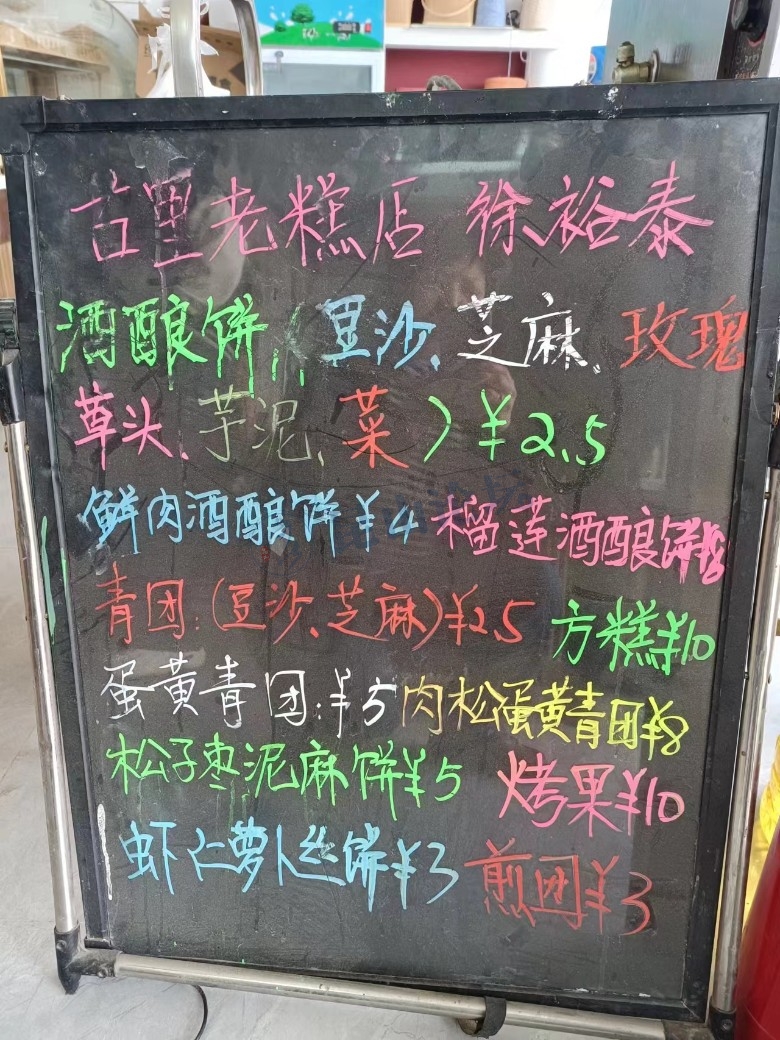 古里老糕店 徐裕泰
酒酿饼(豆沙、芝麻、玫瑰
草头、芋泥、菜)¥2.5
鲜肉酒酿饼¥4 榴莲酒酿饼¥8
青团:(豆沙、芝麻)¥2.5 方糕¥10
蛋黄青团:¥5 肉松蛋黄青团¥8
松子枣泥麻饼¥5 烤果¥10
虾仁萝卜丝饼¥3 煎团¥3